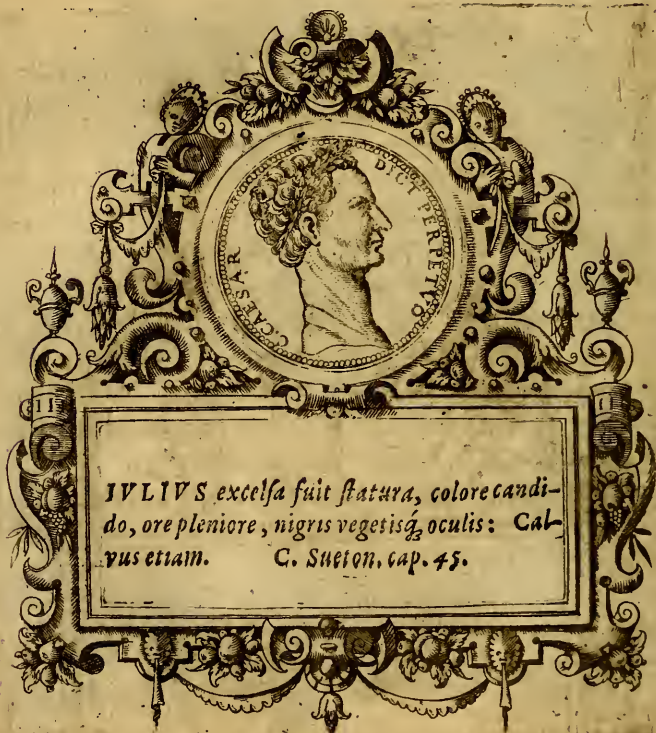 C CAESAR DICT PERPETVO
III I
IVLIVS excelſa fuit ſtatura, colore candi-
do, ore pleniore, nigris vegetisq́ꝫ oculis: Cal-
vus etiam. C. Sueton. cap. 45.